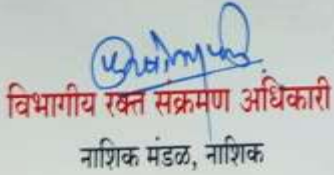 विभागीय रक्त संक्रमण अधिकारी
नाशिक मंडळ, नाशिक